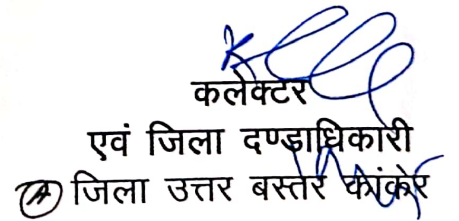 कलेक्टर
एवं जिला दण्डाधिकारी
जिला उत्तर बस्तर कांकेर